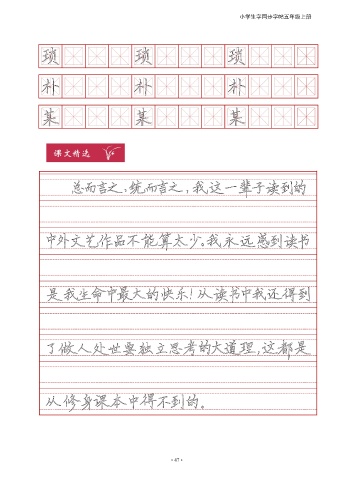 小学生字同步字帖五年级上册
琐 琐 琐
朴 朴 朴
某 某 某
课文精选
总而言之，统而言之，我这一辈子读到的
中外文艺作品不能算太少。我永远感到读书
是我生命中最大的快乐！从读书中我还得到
了做人处世要独立思考的大道理，这都是
从修身课本中得不到的。
· 47 ·